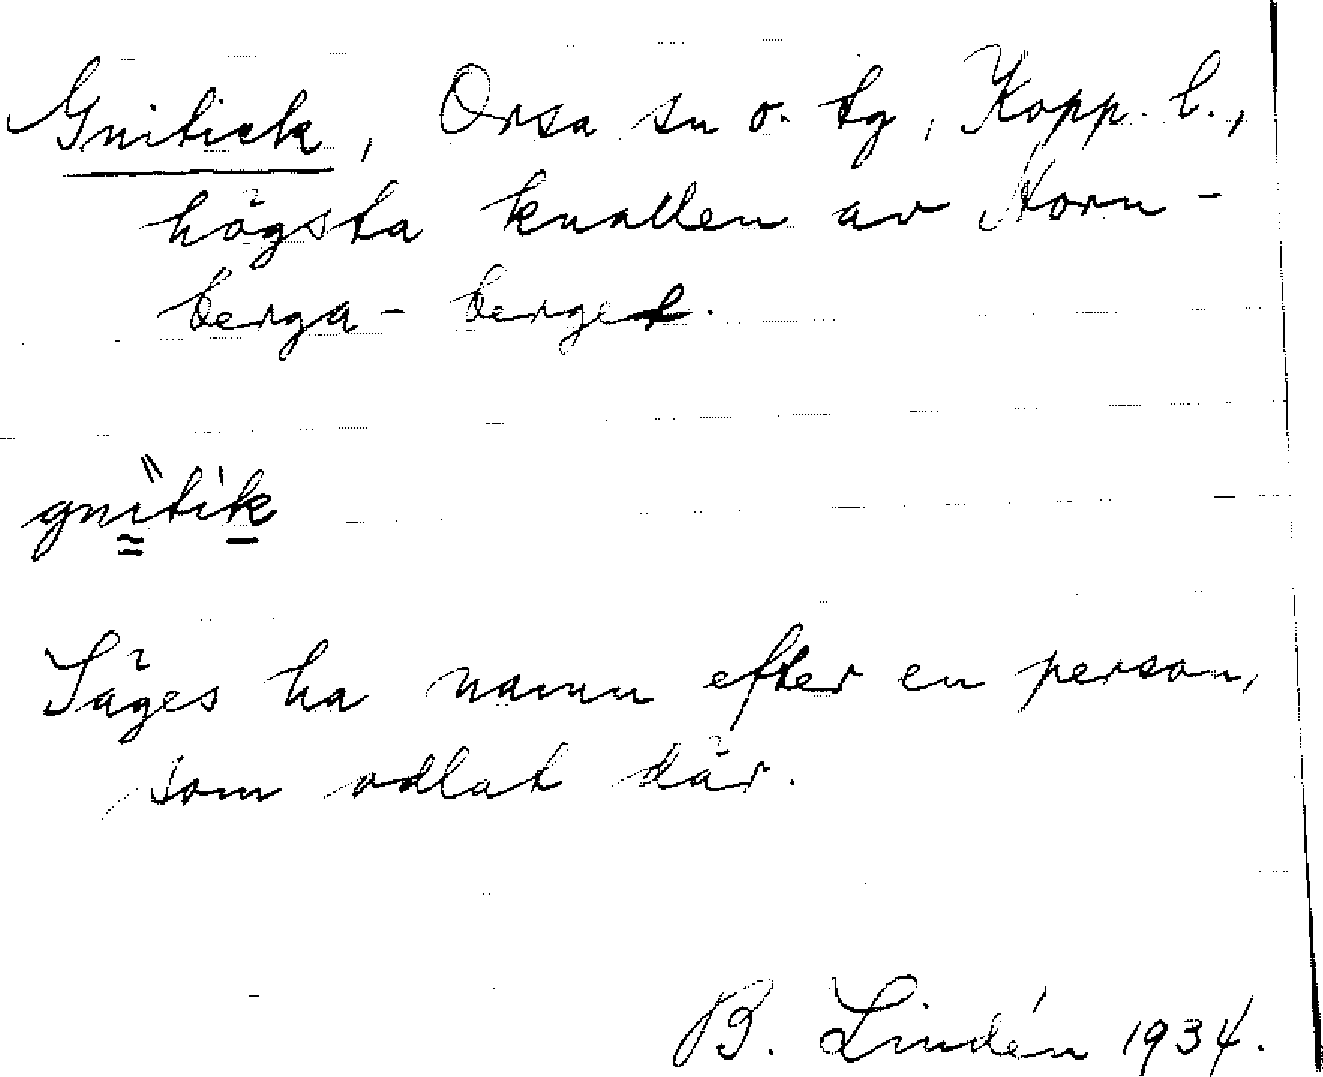 Gnitick, Orsa sn o. tg, Kopp. l.,
högsta knallen av Horn-
berga-berget.
gnitik
Säges ha namn efter en person,
som odlat där.
B. Lindén 1934.